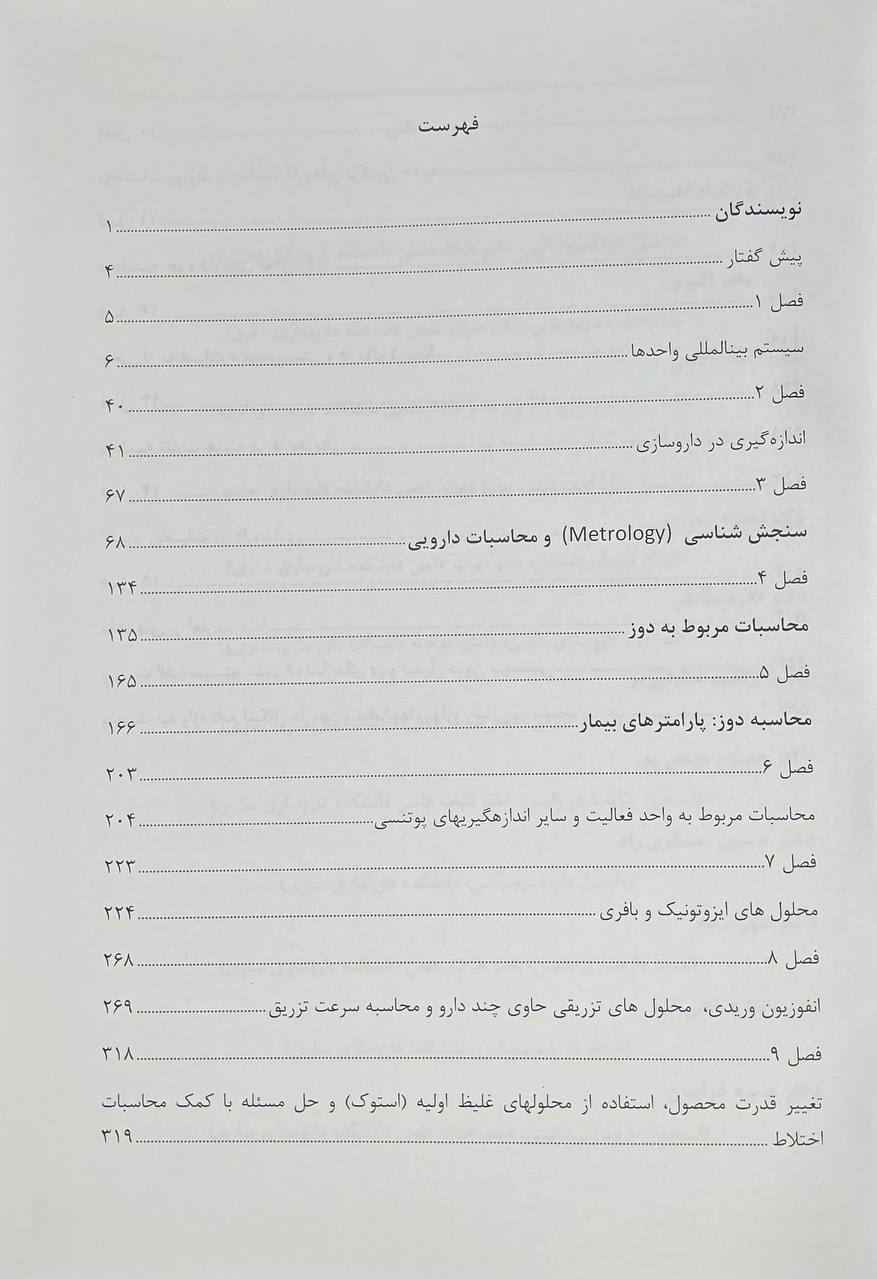 فهرست
نویسندگان ........ ۱
پیش گفتار ........ ۴
فصل ۱ ........ ۵
سیستم بینالمللی واحدها ........ ۶
فصل ۲ ........ ۴۰
اندازه‌گیری در داروسازی ........ ۴۱
فصل ۳ ........ ۶۷
سنجش شناسی (Metrology) و محاسبات دارویی ........ ۶۸
فصل ۴ ........ ۱۳۴
محاسبات مربوط به دوز ........ ۱۳۵
فصل ۵ ........ ۱۶۵
محاسبه دوز: پارامترهای بیمار ........ ۱۶۶
فصل ۶ ........ ۲۰۳
محاسبات مربوط به واحد فعالیت و سایر اندازهگیریهای پوتنسی ........ ۲۰۴
فصل ۷ ........ ۲۲۳
محلول های ایزوتونیک و بافری ........ ۲۲۴
فصل ۸ ........ ۲۶۸
انفوزیون وریدی، محلول های تزریقی حاوی چند دارو و محاسبه سرعت تزریق ........ ۲۶۹
فصل ۹ ........ ۳۱۸
تغییر قدرت محصول، استفاده از محلولهای غلیظ اولیه (استوک) و حل مسئله با کمک محاسبات
اختلاط ........ ۳۱۹